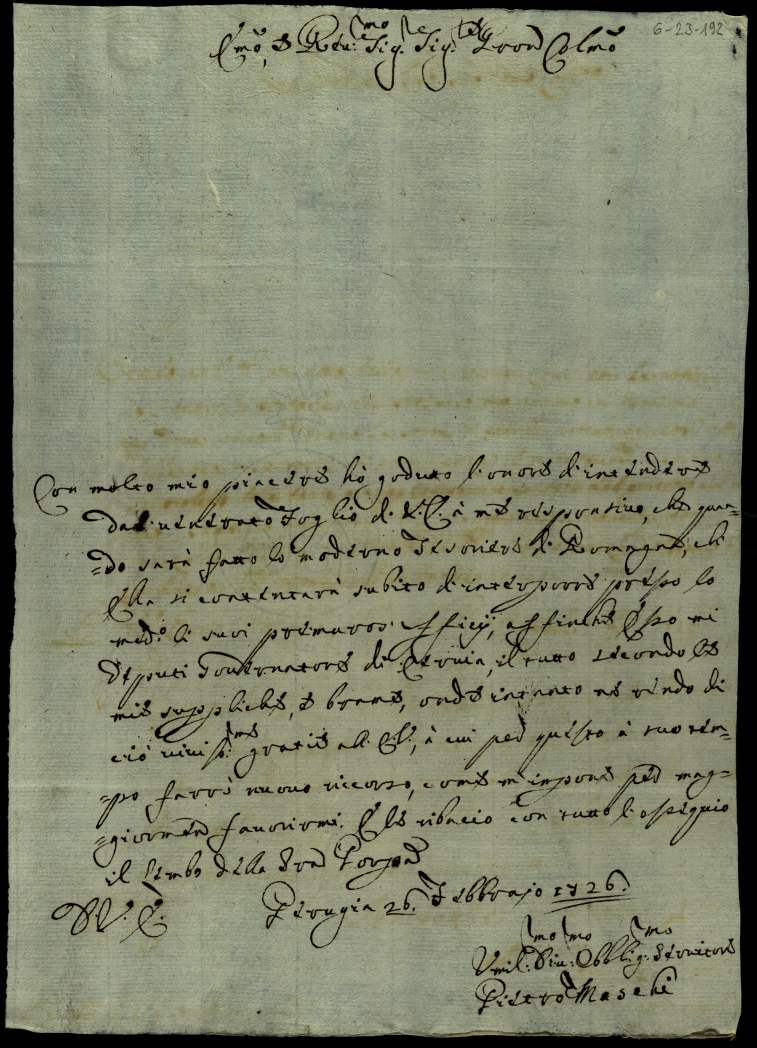 6-23-192
Emo, e Rdu:mo Sig:re Sig:re Pron Colmo
Con molto mio piacere hò goduto l'onore di intendere
dal venerato Foglio di V.E. à me responsivo, che quan=
=do sarà fatto lo moderno Tesoriere di Romagna, che
Ella si contentarà subito di interporre presso lo
medo li suoi premurosi officij, affinche Esso mi
deputi Governatore di Cervia, il tutto secondo le
mie suppliche, e brame, onde intanto ne rendo di
ciò viviss:me gratie all'E.V., à cui per questo à suo tem=
=po farrò nuovo riccorso, come m'impone per mag=
=giormte favorirmi. E le ribacio con tutto l'ossequio
il lembo della Sra Porpa
D.V.E.
Perugia 26. Febbrajo 1726.
Vmil:mo Diu:mo Obblig:mo Servitore
Pietro Maschi